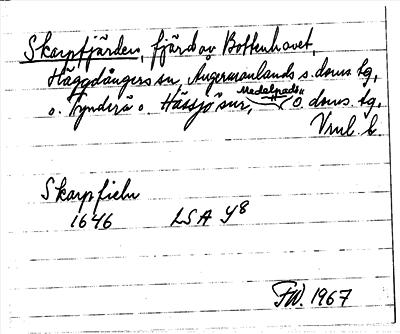 Skarpfjärden, fjärd av Bottenhavet,
Häggdångers sn, Ångermanlands s. doms. tg,
o. Tynderö o. Hässjö snr, Medelpads ö. doms. tg,
Vnrl. l.
Skarp fieln
1646 LSA Y8
FW. 1967